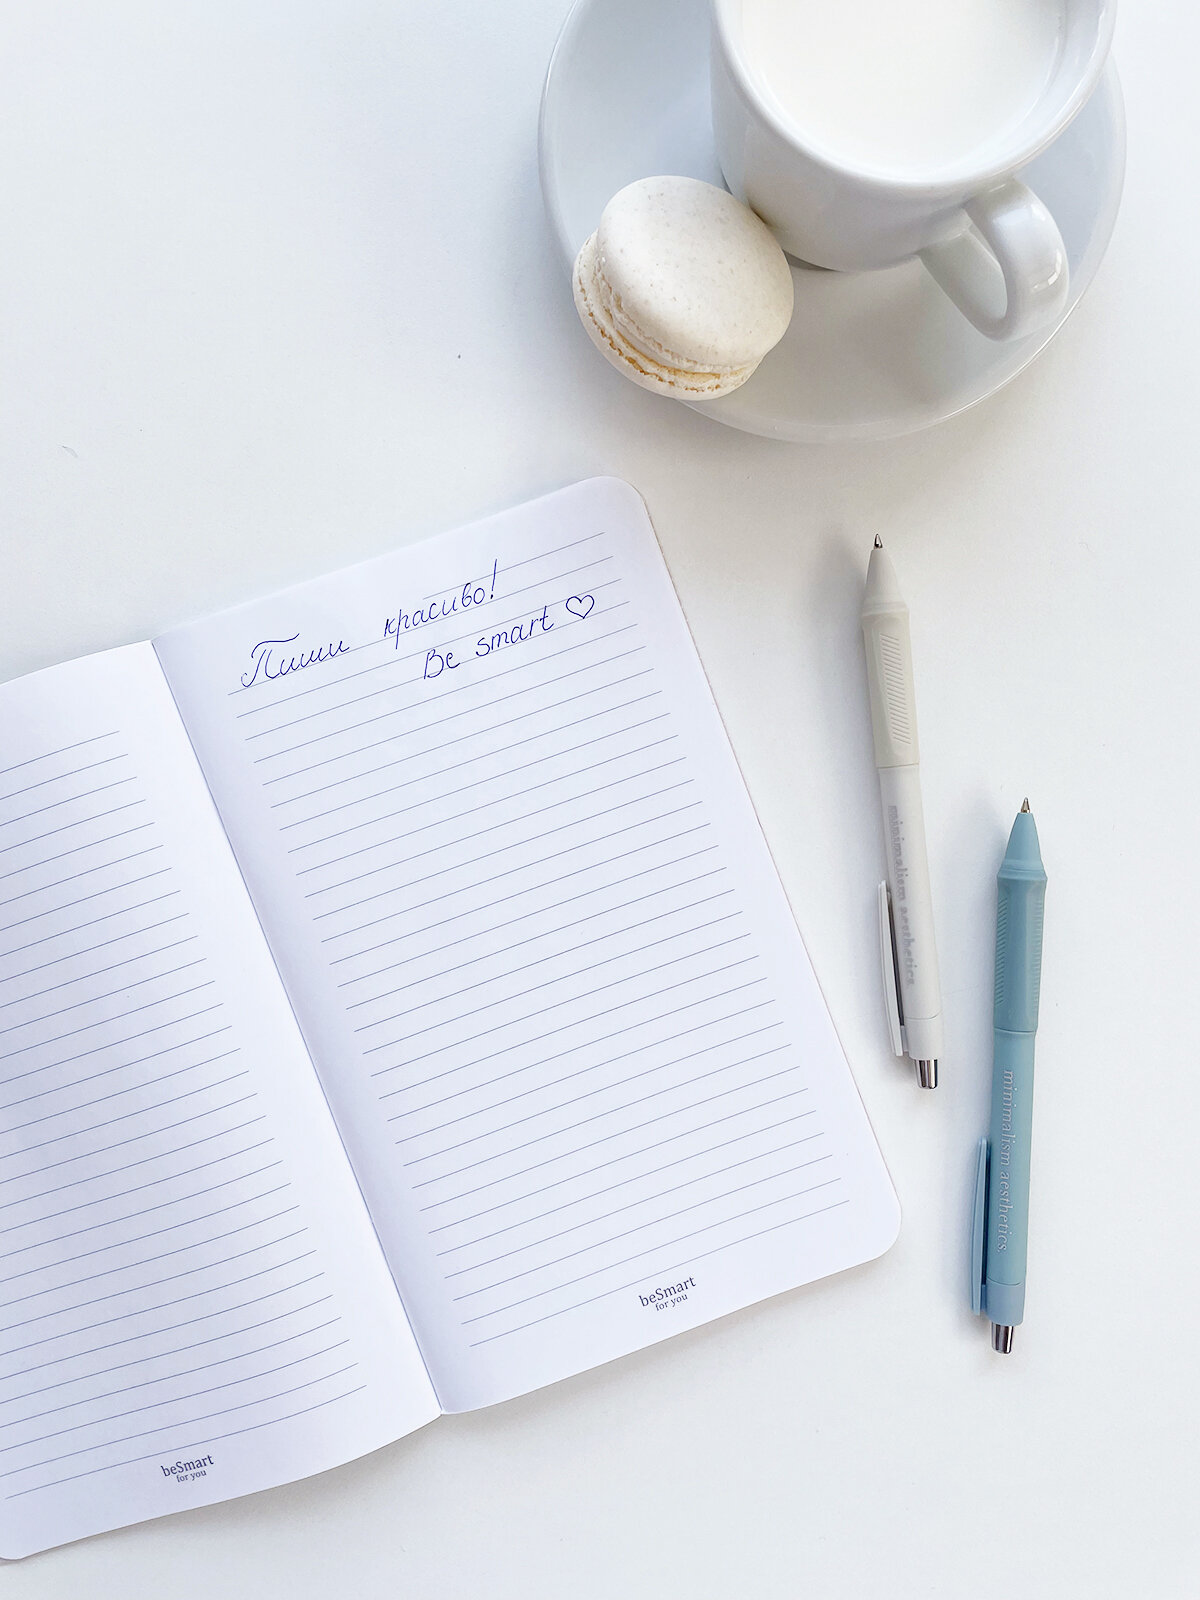 Пиши красиво!
Be smart ♡
minimalism aesthetics
minimalism aesthetics.
beSmart
for you
beSmart
for you